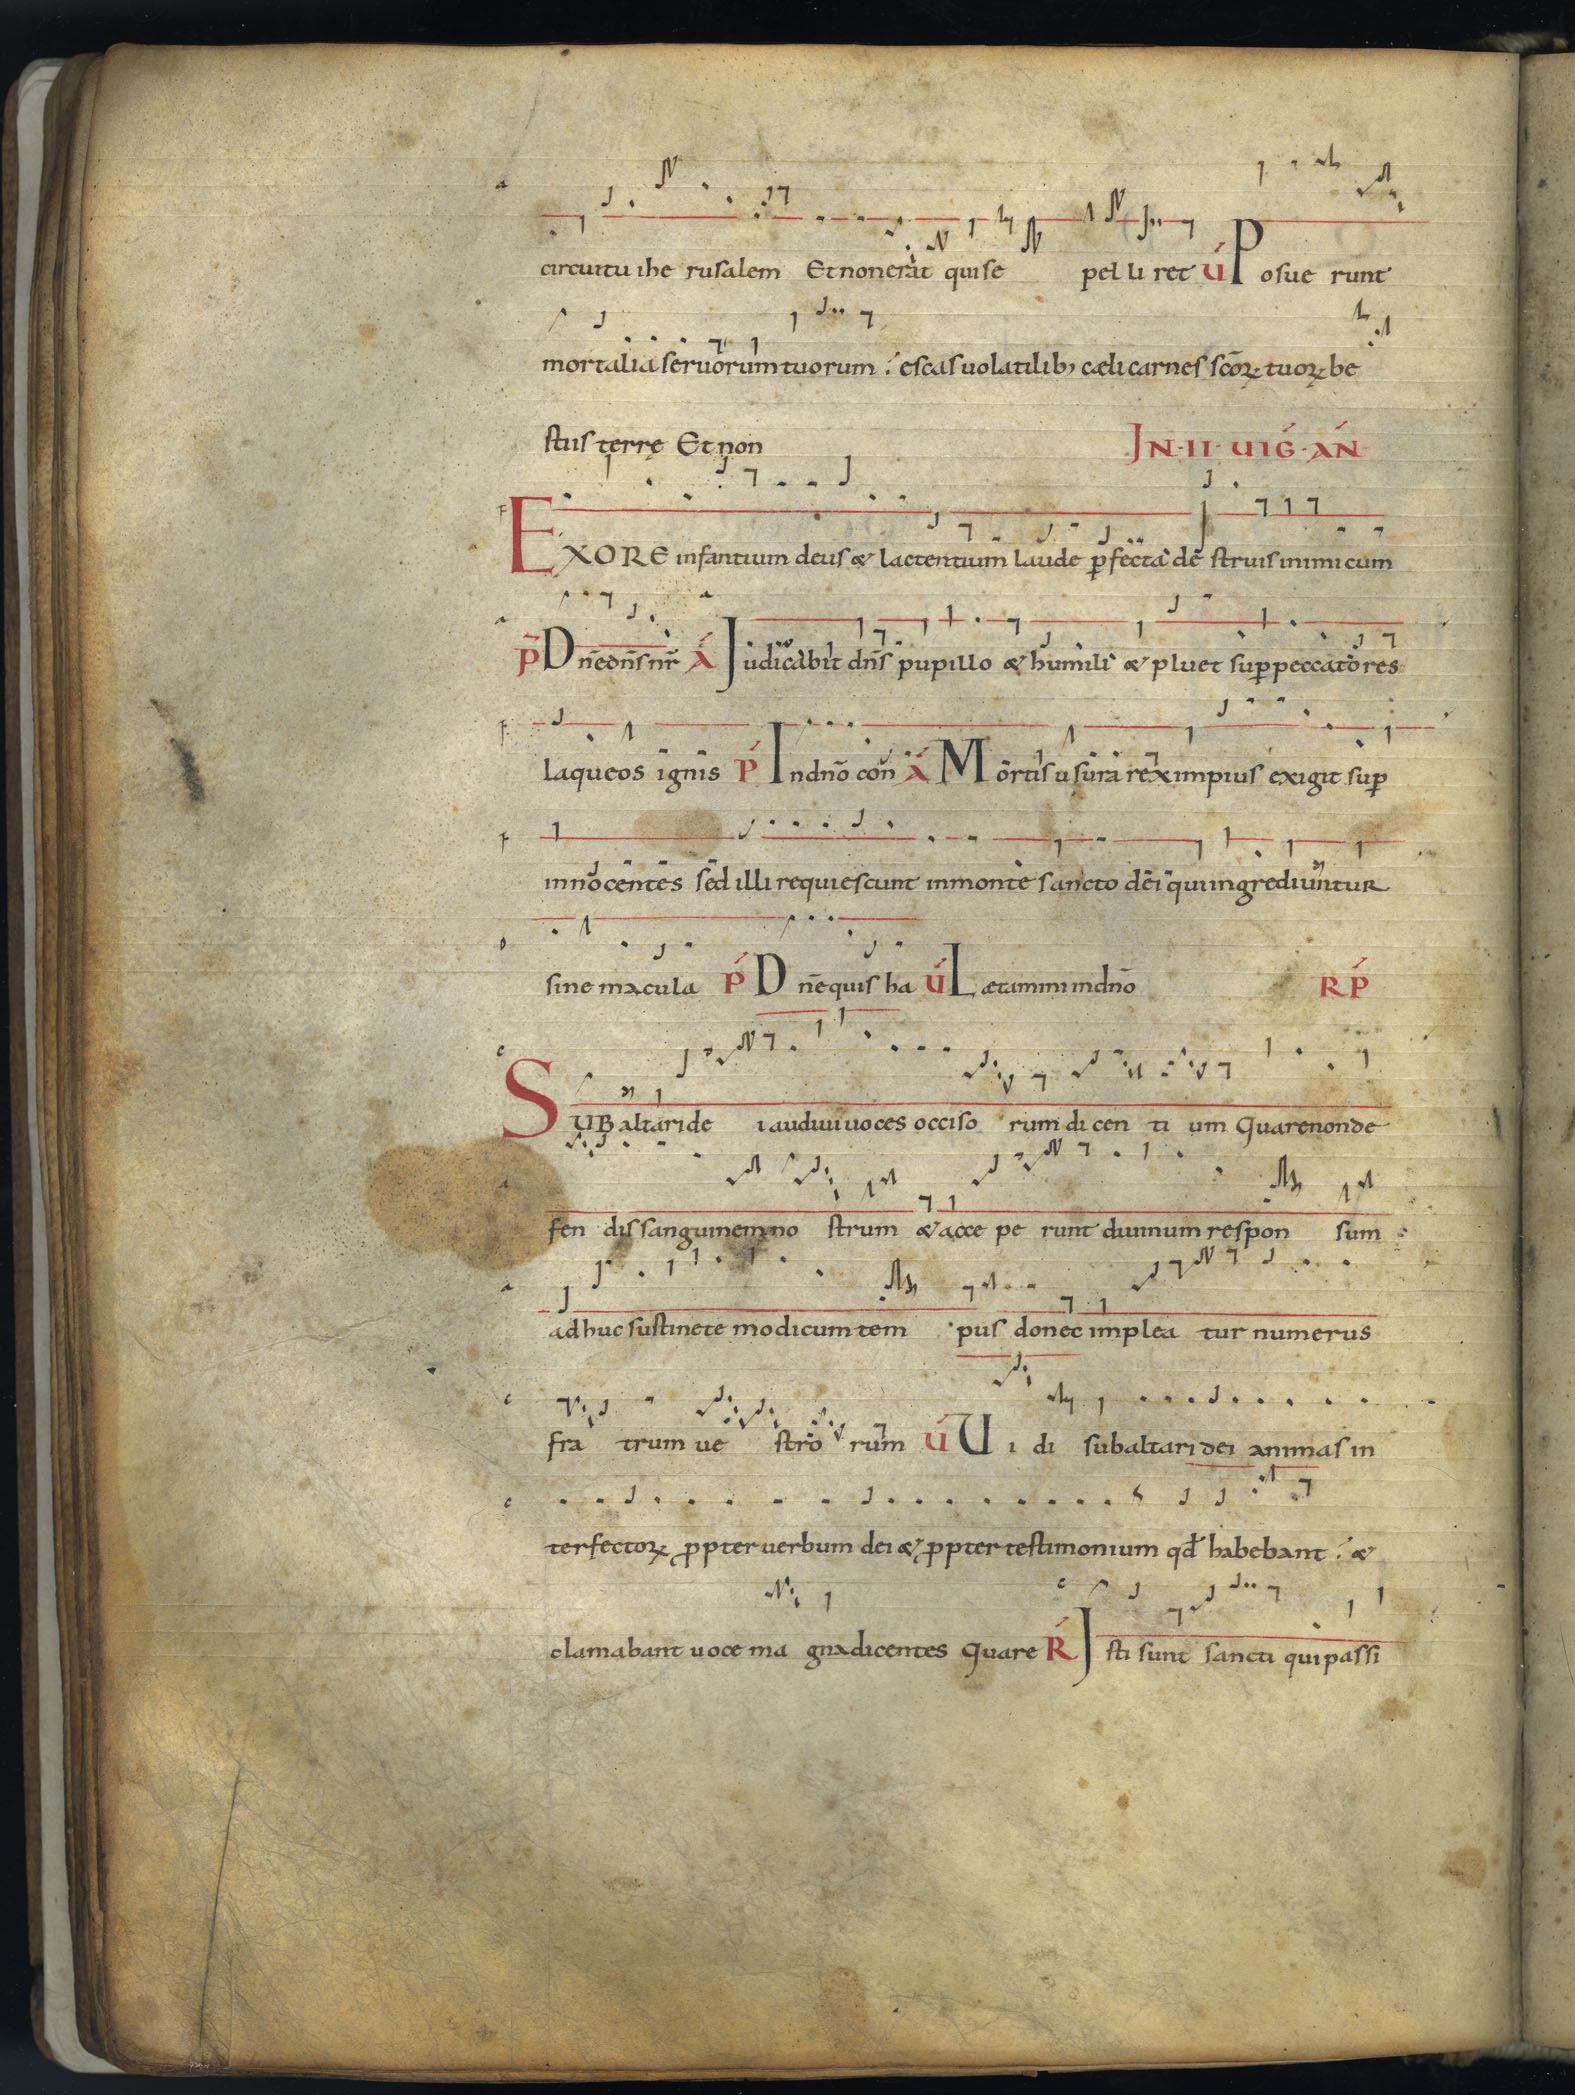 circuitu ihe rusalem Et non erat qui se pel li ret V́ Posue runt
mortalia seruorum tuorum : escas uolatilib; cæli carnes scōꝝ tuoꝝ be
stiis terrę Et non IN · II · UIǴ · AŃ
EX ORE infantium deus & lactentium laude ꝑfecta de struis inimicum
P̄ Dn̄e dn̄s nr̄ Á Iudicabit dn̄s pupillo & humili & pluet suꝑ peccatores
laqueos ignis Ṕ In dn̄o con Á Mortis usura rex impius exigit suꝑ
innocentes sed illi requiescunt in monte sancto dei qui ingrediuntur
sine macula Ṕ Dn̄e quis ha V́ Lætamini in dn̄o RṔ
SUB altari de i audiui uoces occiso rum di cen ti um Quare non de
fen dis sanguinem no strum & acce pe runt diuinum respon sum
adhuc sustinete modicum tem pus donec implea tur numerus
fra trum ue stro rum V́ Ui di sub altari dei animas in
terfectoꝝ ꝓpter uerbum dei & ꝓpter testimonium qđ habebant : &
clamabant uoce ma gna dicentes Quare Ŕ Isti sunt sancti qui passi